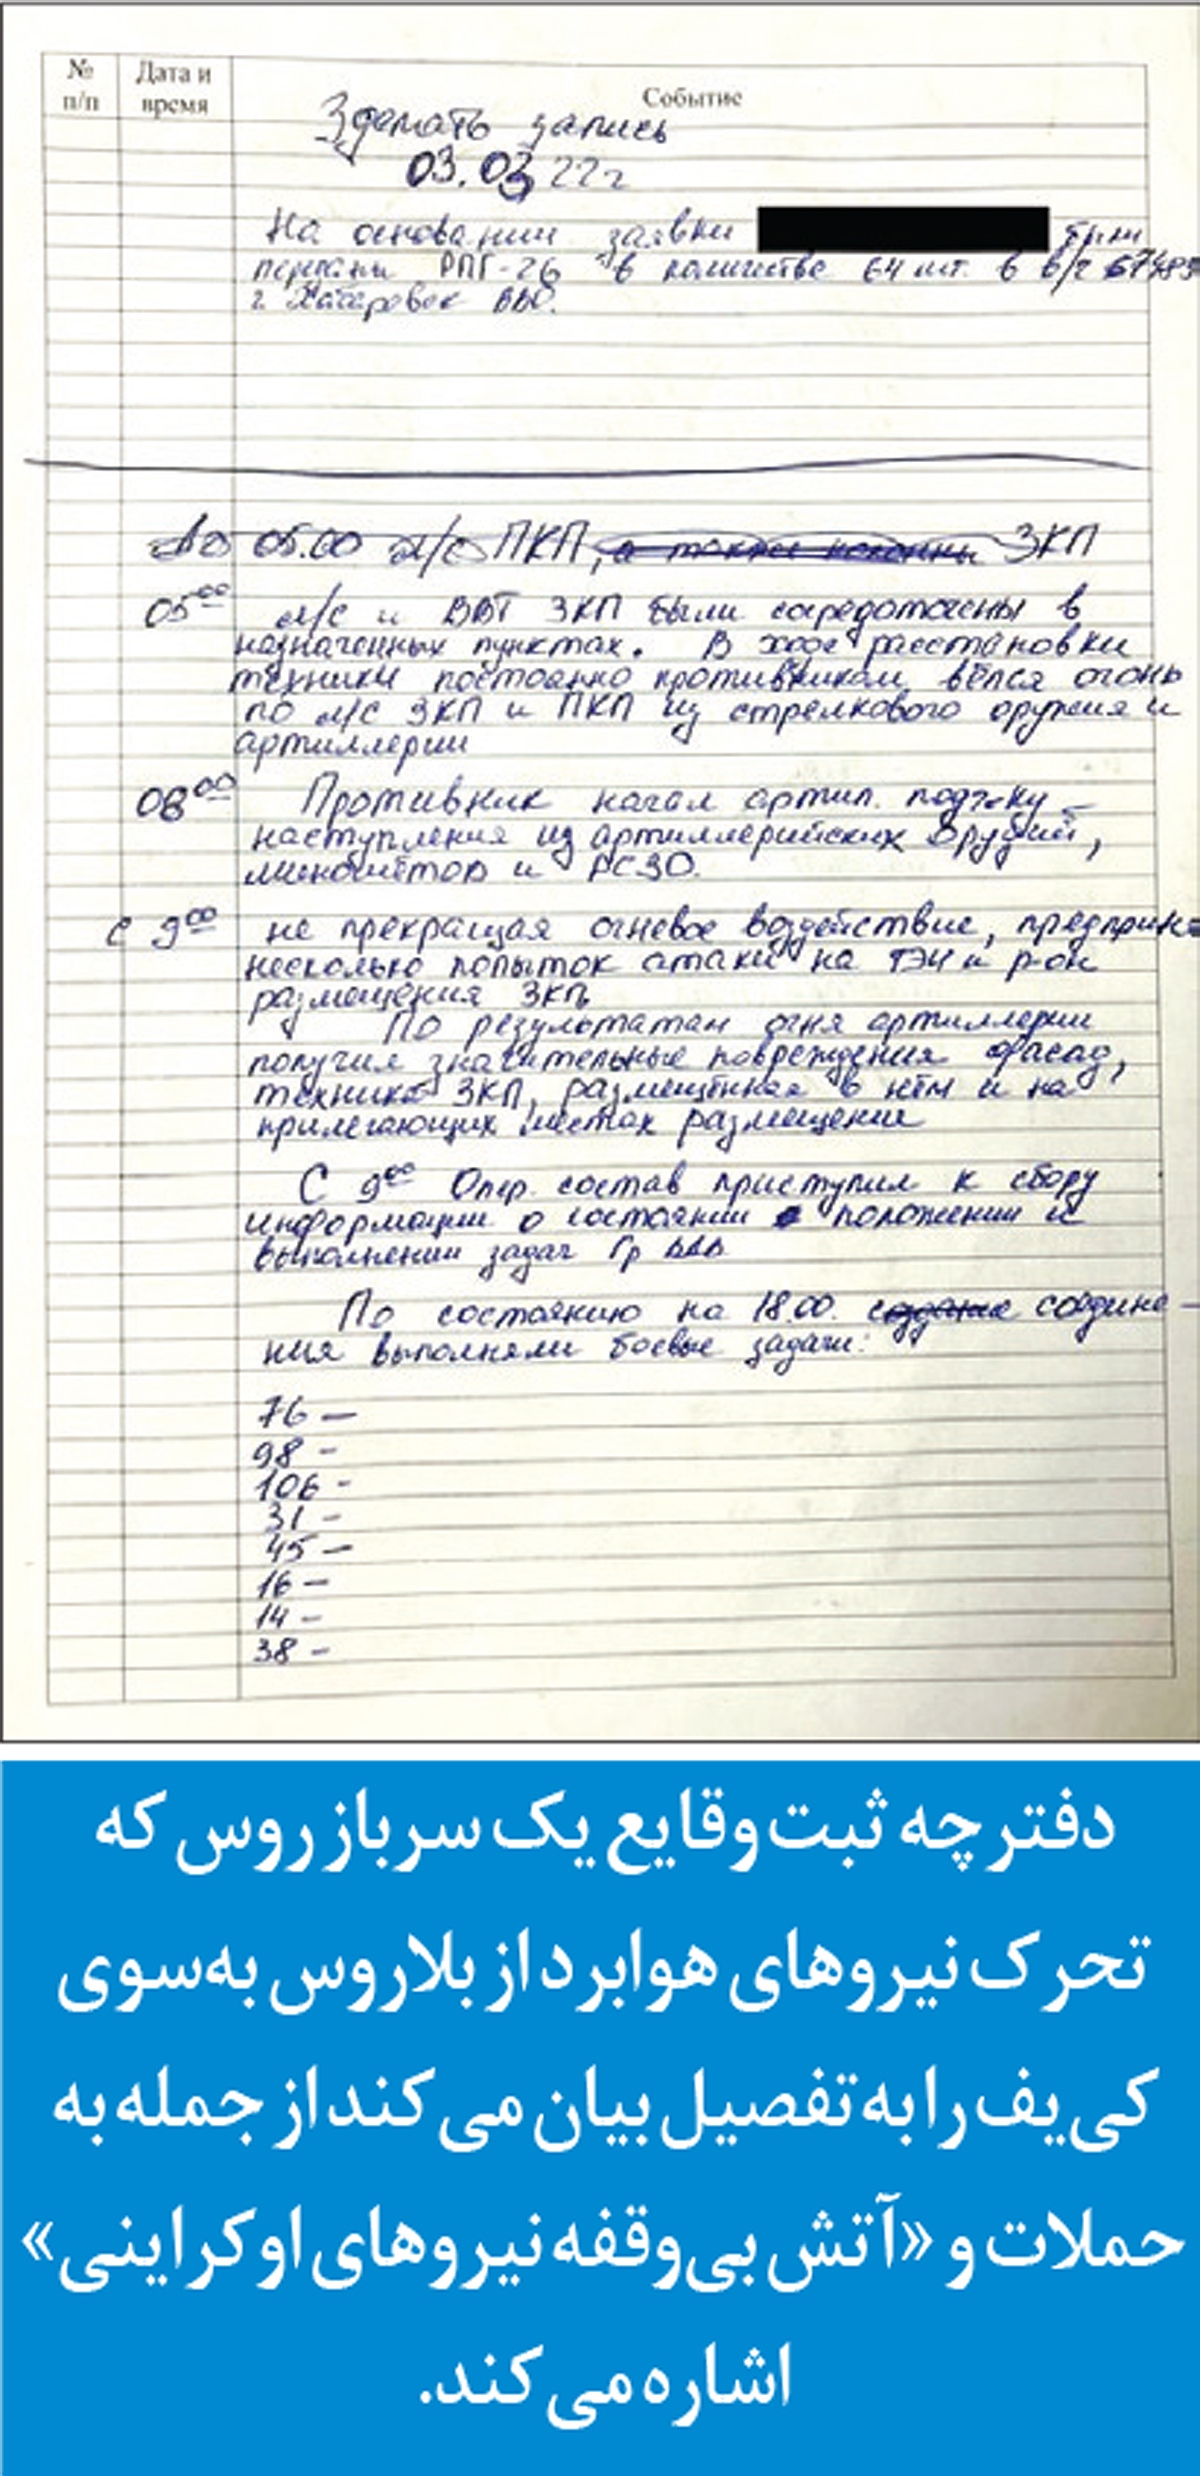 № п/п
Дата и время
Событие
Зделать запись
03.03 22г
На основании заявки были
переданы РПГ-26 в количестве 64 шт. в в/ч
г. Хабаровск ВВО.
До 05.00 л/с ПКП, а также колонны ЗКП
05 00 л/с и ВВТ ЗКП были сосредоточены в
назначенных пунктах. В ходе расстановки
техники постоянно противником вёлся огонь
по л/с ЗКП и ПКП из стрелкового оружия и
артиллерии
08 00 Противник начал артил. подг-ку
наступления из артиллерийских орудий,
миномётов и РСЗО.
С 9 00 не прекращая огневое воздействие,
несколько попыток атаки на ТЭЧ и р-он
размещения ЗКП
По результатам огня артиллерии
получил значительные повреждения фасад,
техника ЗКП, размещённая в нём и на
прилегающих местах размещения
С 9 00 Опер. состав приступил к сбору
информации о состоянии положении и
выполнении задач Гр
По состоянию на 18.00. соедине-
ния выполняли боевые задачи:
76 —
98 -
106 -
31 -
45 —
16 —
14 -
38 -
دفترچه ثبت وقایع یک سرباز روس که
تحرک نیروهای هوابرد از بلاروس به‌سوی
کی‌یف را به تفصیل بیان می‌کند از جمله به
حملات و «آتش بی‌وقفه نیروهای اوکراینی»
اشاره می‌کند.